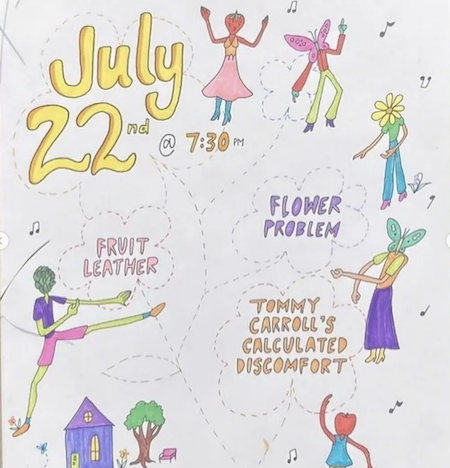 July
22nd @ 7:30 PM
FLOWER
PROBLEM
FRUIT
LEATHER
TOMMY
CARROLL'S
CALCULATED
DISCOMFORT